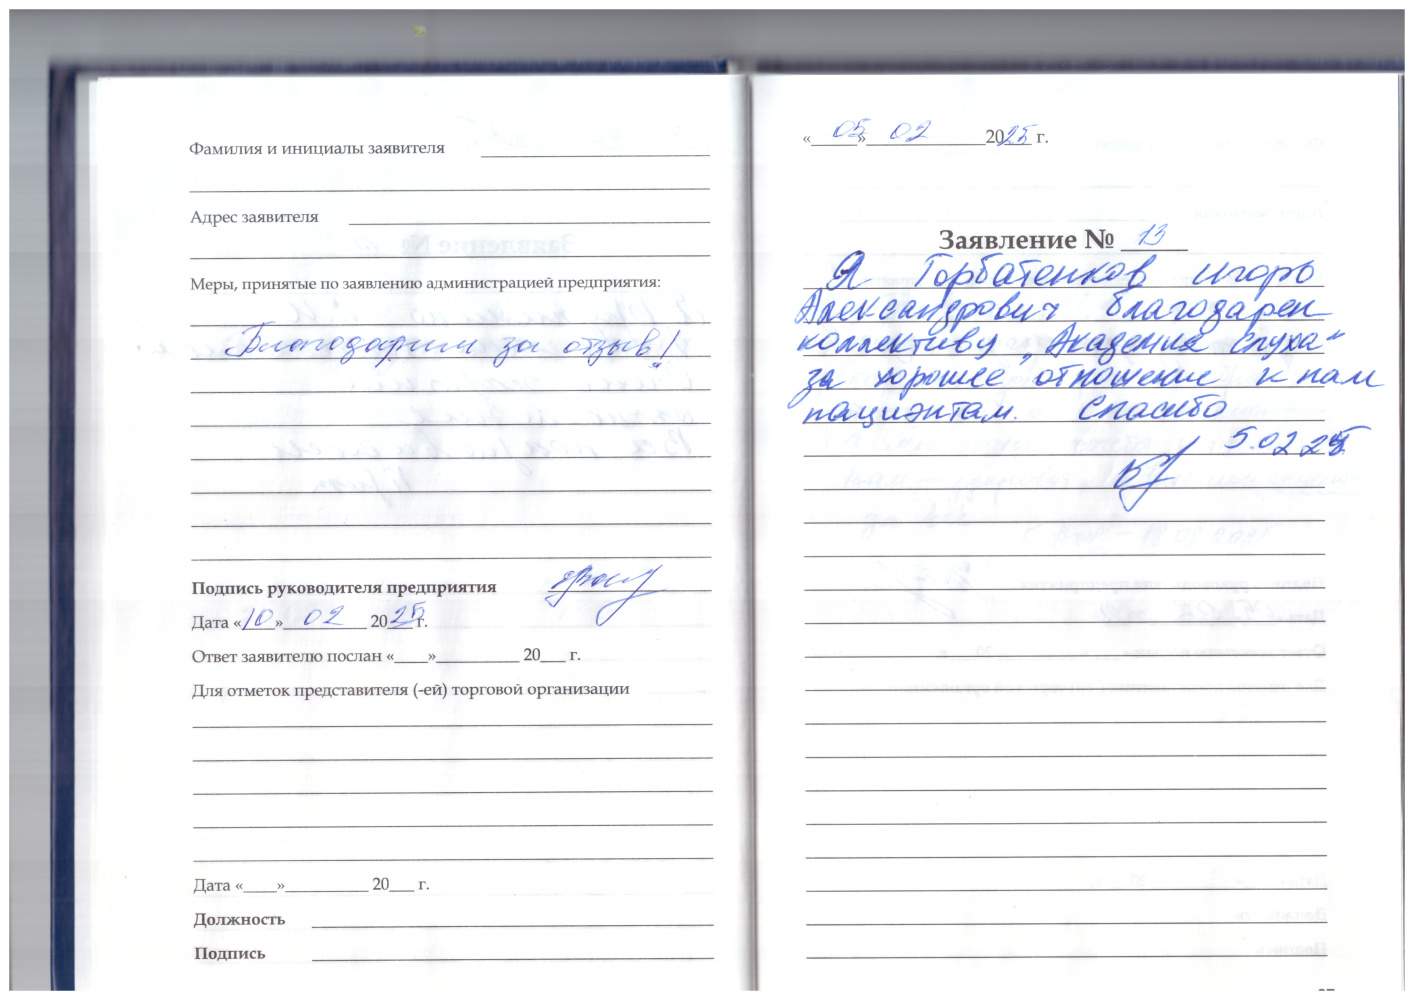 Фамилия и инициалы заявителя
Адрес заявителя
Меры, принятые по заявлению администрацией предприятия:
Благодарим за отзыв!
Подпись руководителя предприятия
Дата «10» 02 2025 г.
Ответ заявителю послан «____»__________ 20___ г.
Для отметок представителя (-ей) торговой организации
Дата «____»__________ 20___ г.
Должность
Подпись
«05» 02 2025 г.
Заявление № 13
Я Горбатенков Игорь
Александрович благодарен
коллективу „Академия Слуха“
за хорошее отношение к нам
пациэнтам. Спасибо
5.02 25